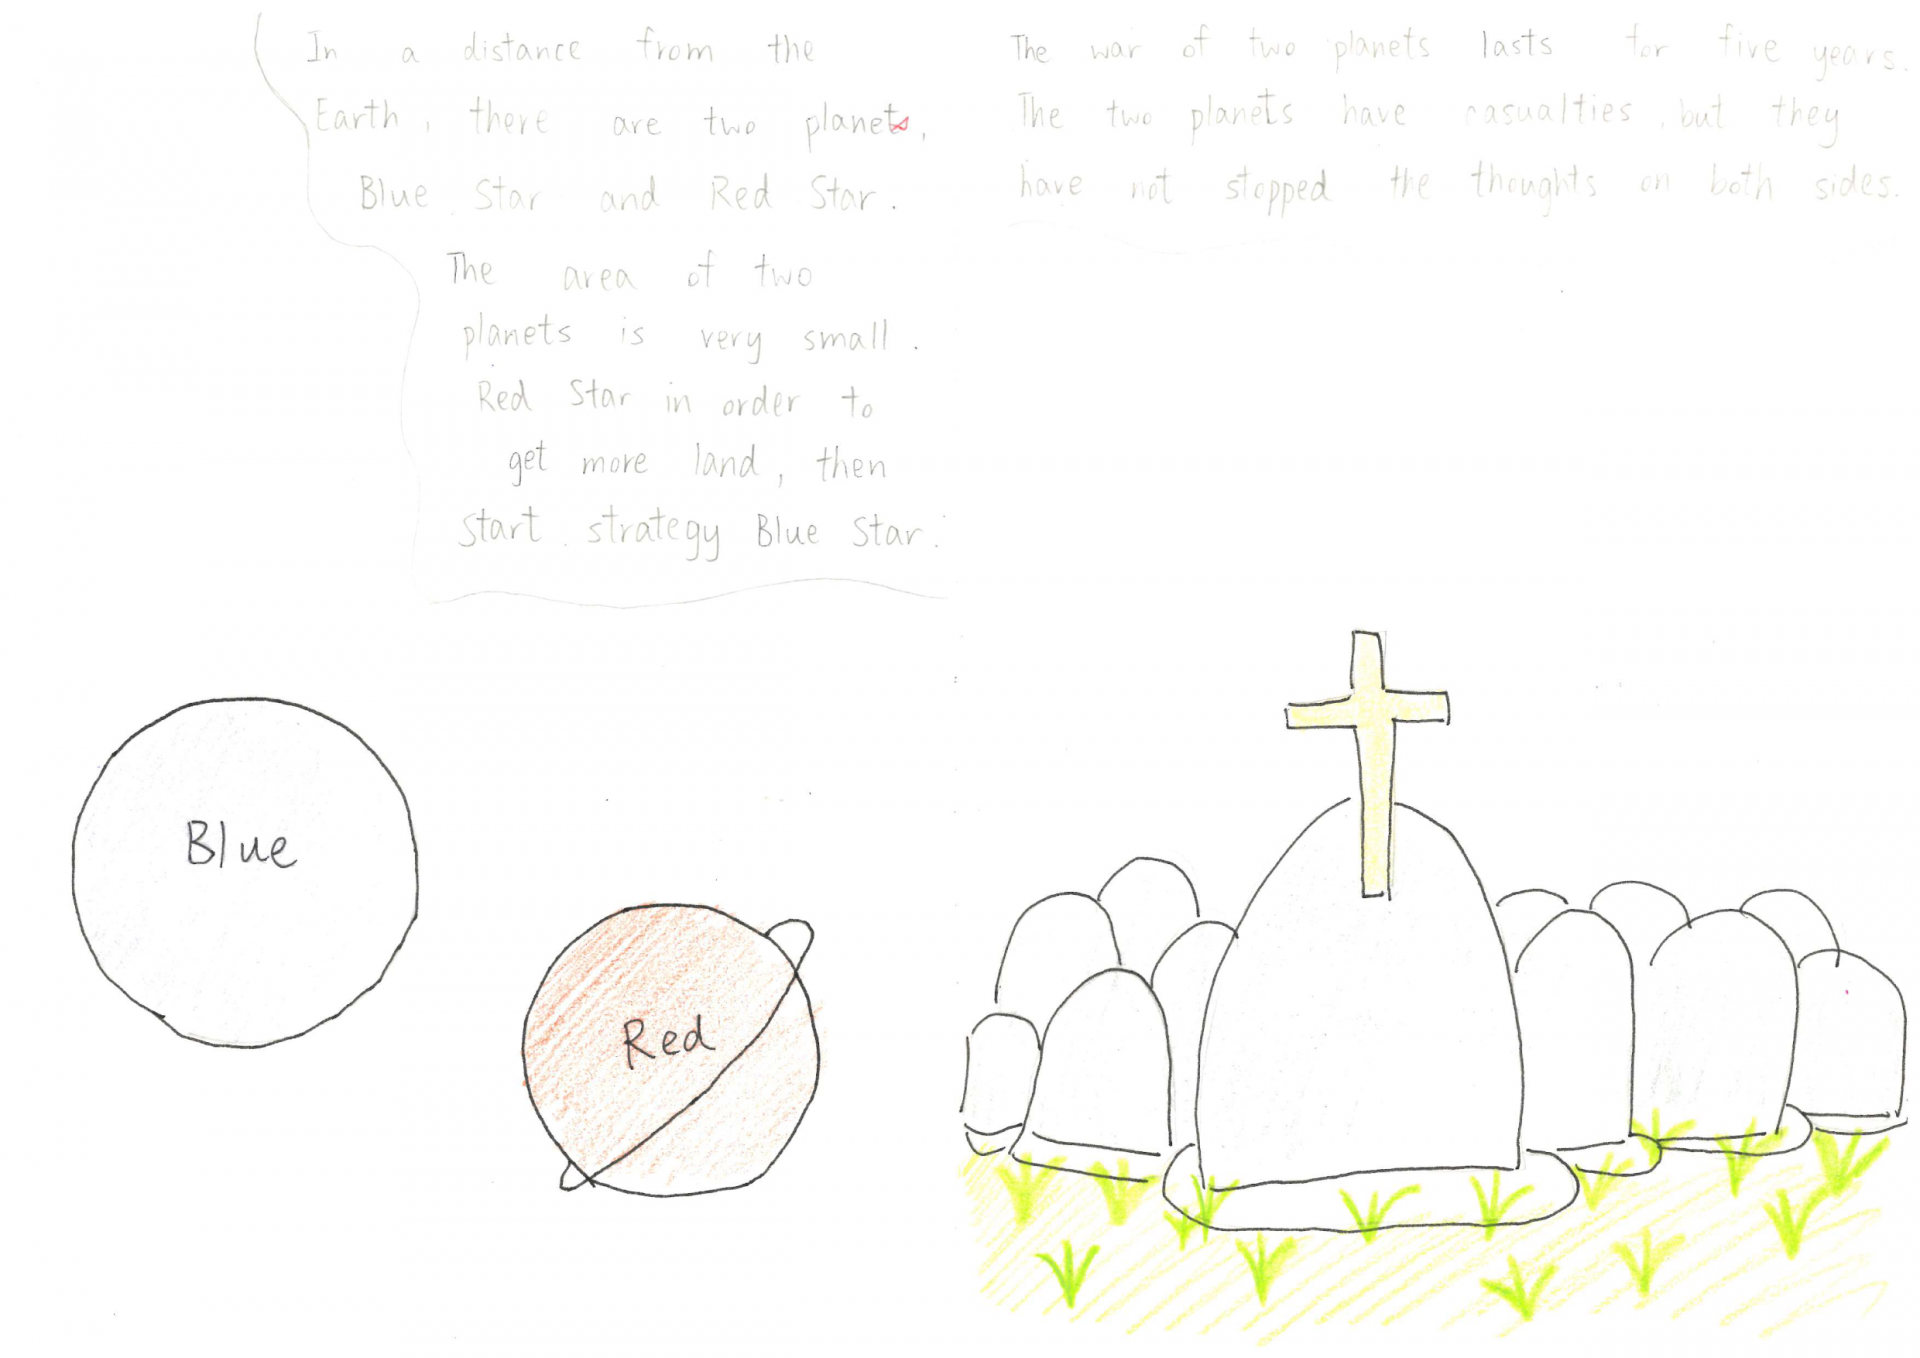 In a distance from the
Earth, there are two planets,
Blue Star and Red Star.
The area of two
planets is very small.
Red Star in order to
get more land, then
Start strategy Blue Star.
Blue
Red
The war of two planets lasts for five years.
The two planets have casualties, but they
have not stopped the thoughts on both sides.